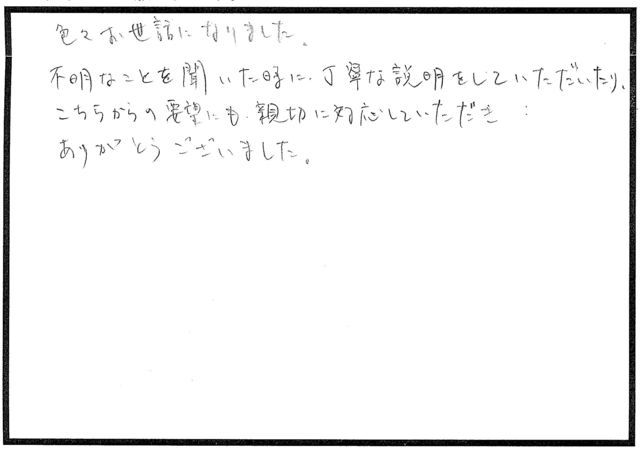 色々お世話になりました。
不明なことを聞いた時に、丁寧な説明をしていただいたり、
こちらからの要望にも、親切に対応していただき
ありがとうございました。